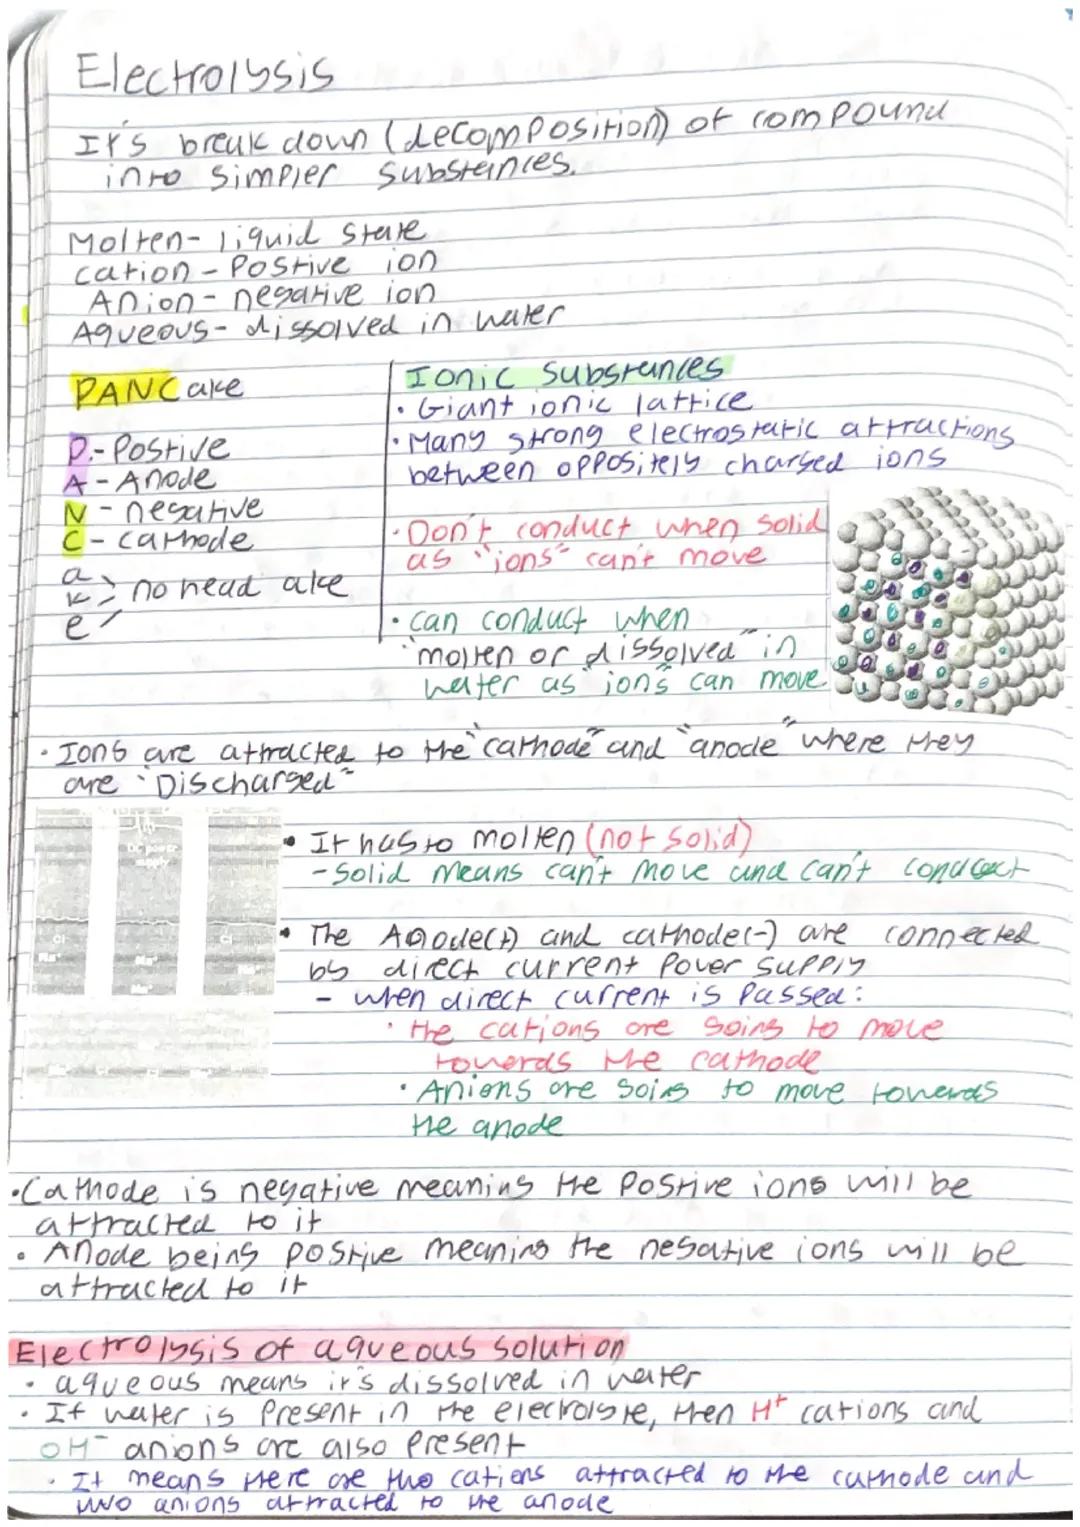 Electrolysis
It's break down (decomposition) of compound
into simpler substances.
Molten- liquid state
cation - Postive ion
Anion - negative ion
Aqueous- dissolved in water
PANCake
P.- Postive
A - Anode
N - negative
C - cathode
a
k > no head ake
e
Ionic Substances
• Giant ionic lattice
• Many strong electrostatic attractions
between oppositely charged ions
• Don't conduct when solid
as "ions" can't move
• can conduct when
"molten or dissolved" in
water as "ions" can move
• Ions are attracted to the "cathode" and "anode" where they
are "Discharged"
DC power
supply
Cl
Cl
Na+
Na+
Na+
• It has to molten (not solid)
- Solid means can't move and can't conduct
• The Anode(+) and cathode(-) are connected
by direct current Power supply
- when direct current is passed:
• the cations are going to move
towards the cathode
• Anions are going to move towards
the anode
• Cathode is negative meaning the Postive ions will be
attracted to it
• Anode being postive meaning the negative ions will be
attracted to it
Electrolysis of aqueous solution
• aqueous means it's dissolved in water
• If water is present in the electrolyte, then H+ cations and
OH- anions are also present
• It means there are two cations attracted to the cathode and
two anions attracted to the anode